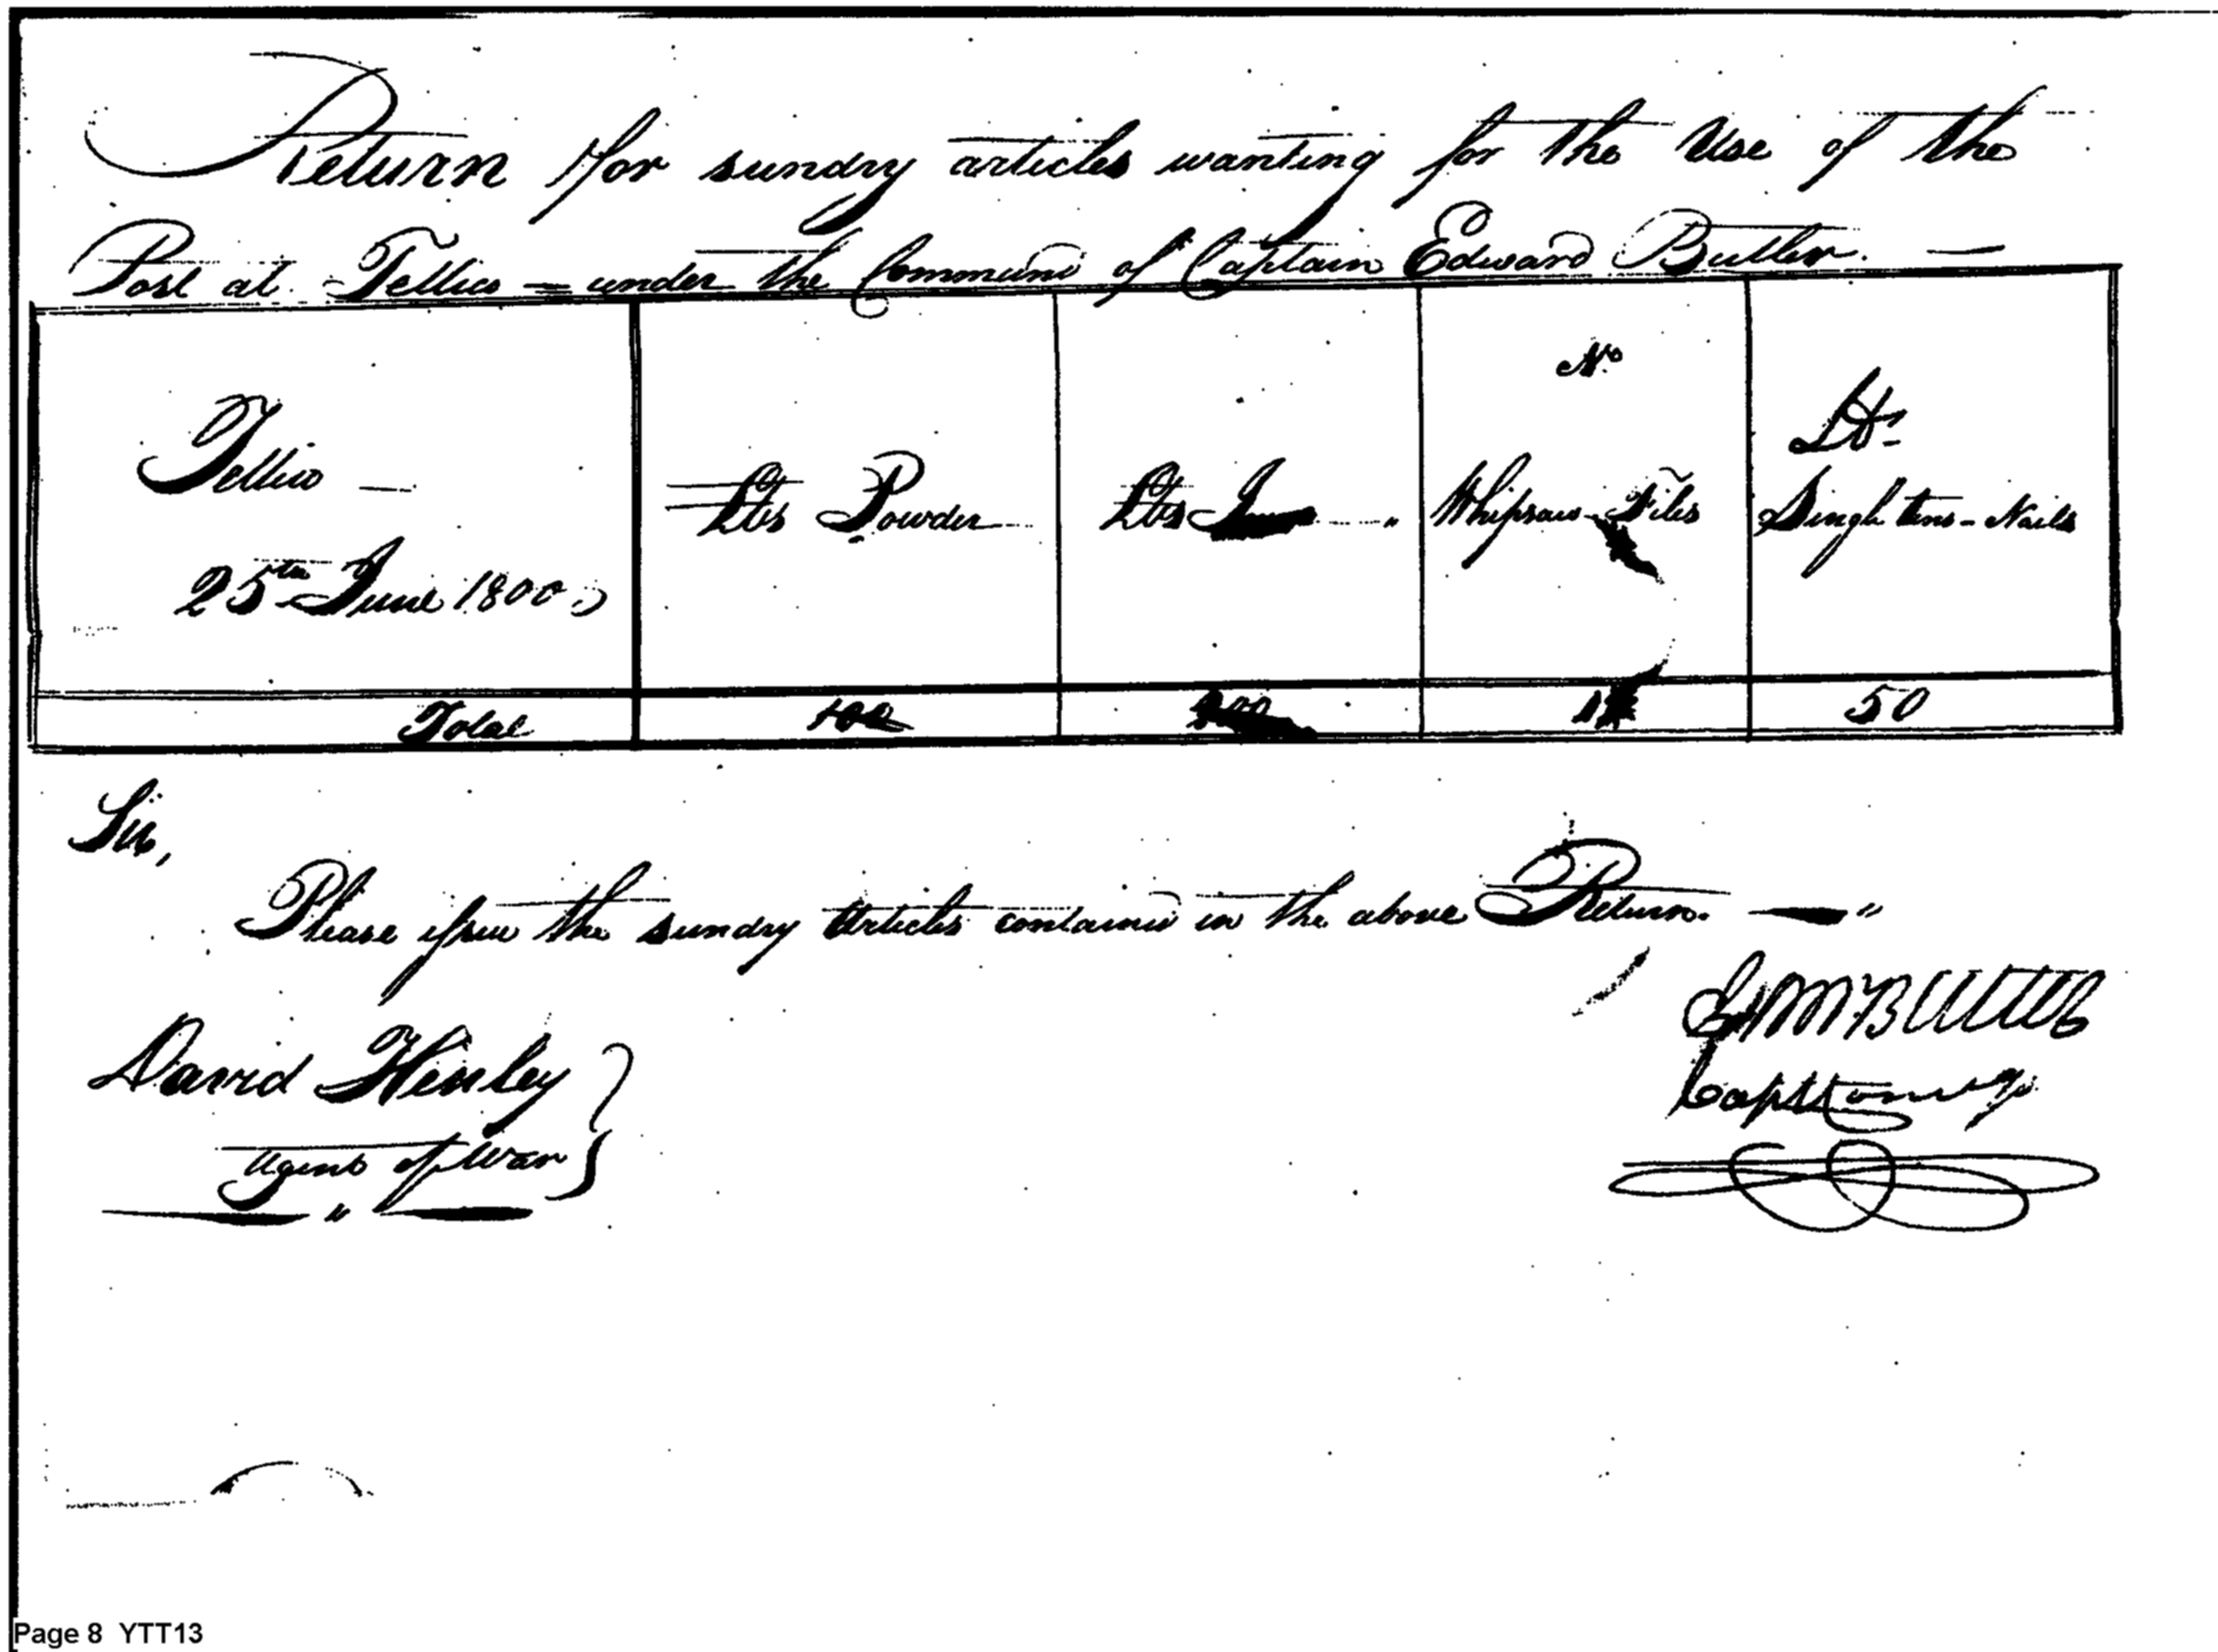 Return for sundry articles wanting for the Use of the
Post at Tellico – under the Command of Captain Edward Butler. –
Tellico –
25th June 1800
Lbs Powder
Lbs
No
Whipsaw Files
Lbs
Single tens – Nails
Total 100 50
Sir,
Please issue the sundry Articles contained in the above Return. – "
David Henley
Agent of War
Butler
Capt
Page 8 YTT13